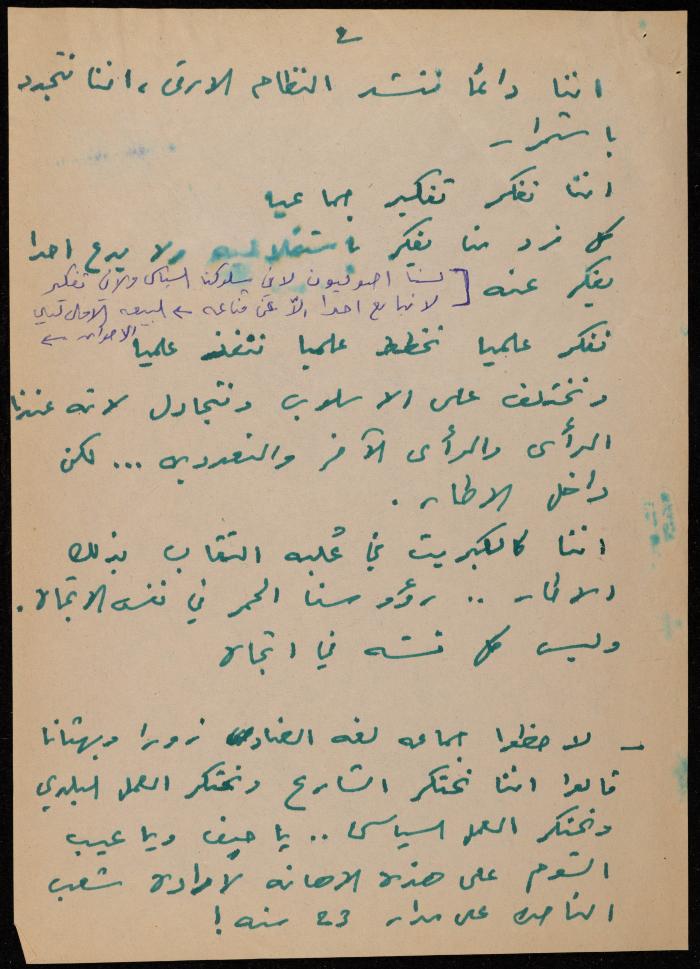 ٢
اننا دائمًا ننشد النظام الارقى، اننا نتجدد
باستمرار
اننا نفكر تفكير جماعيا
كل فرد منا يفكر باستقلاليه ولا يدع احدا
يفكر عنه [لسنا اصوليون لا في سلوكنا السياسي ولا في تفكير
لا نبايع احدا الّا عن قناعه ←
نفكر علميا نخطط علميا ننفذ علميا
ونختلف على الاسلوب ونتجادل لانه عندنا
الرأى والرأى الآخر والتعدديه ... لكن
داخل الاطار .
اننا كالكبريت في عُلبه الثقاب بذلك
الاطار .. رؤوسنا الحمر في نفس الاتجاه .
وليس كل قشه في اتجاه
– لاحظوا جماعه لغه الضاد زورا وبهتانا
قالوا اننا نحتكر الشارع ونحتكر العمل البلدي
ونحتكر العمل السياسي .. يا حيف ويا عيب
الشوم على هذه الاهانه لارادة شعب
الناصره على مدار 23 سنه !